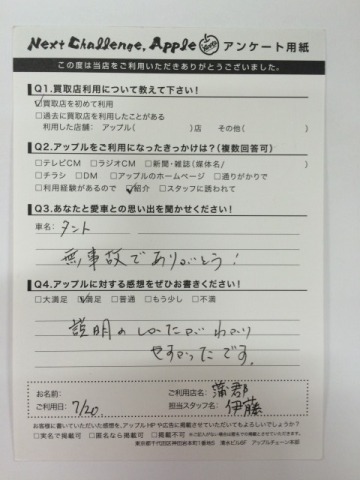 Next Challenge, Apple アンケート用紙
この度は当店をご利用いただきありがとうございました。
Q1.買取店利用について教えて下さい!
☑買取店を初めて利用
□過去に買取店を利用したことがある
利用した店舗: アップル( )店 その他( )
Q2.アップルをご利用になったきっかけは?(複数回答可)
□テレビCM □ラジオCM □新聞・雑誌(媒体名/ )
□チラシ □DM □アップルのホームページ □通りがかりで
□利用経験があるので ☑紹介 □スタッフに誘われて
Q3.あなたと愛車との思い出を聞かせください!
車名: タント
無事故でありがとう!
Q4.アップルに対する感想をぜひお書きください!
□大満足 ☑満足 □普通 □もう少し □不満
説明のしかたがわかり
やすかったです。
お名前: ご利用店名: 蒲郡
ご利用日: 7/20. 担当スタッフ名: 伊藤
お客様に書いていただいた感想を、アップルHPや広告に掲載させていただいてもよろしいでしょうか?
□実名で掲載可 □匿名なら掲載可 □掲載不可
東京都千代田区神田岩本町1番地5 清水ビル5F アップルチェーン本部